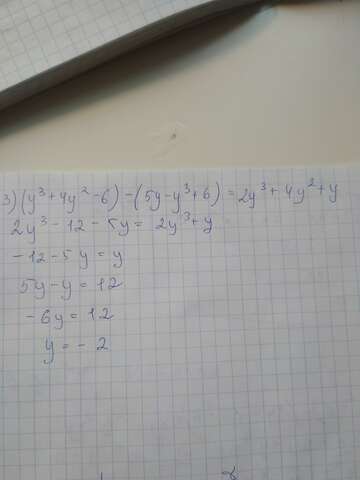 3) (y³ + 4y² - 6) - (5y - y³ + 6) = 2y³ + 4y² + y
2y³ - 12 - 5y = 2y³ + y
- 12 - 5y = y
5y - y = 12
- 6y = 12
y = - 2